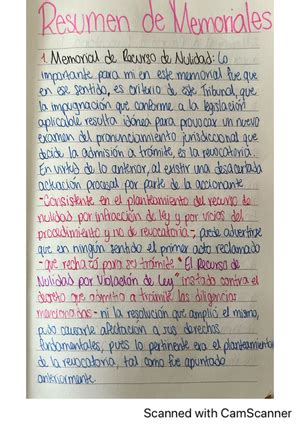 Resumen de Memoriales
1. Memorial de Recurso de Nulidad: Lo
importante para mi en este memorial fue que
en ese sentido, es criterio de este Tribunal, que
la impugnación que conforme a la legislación
aplicable resulta idónea para provocar un nuevo
examen del pronunciamiento jurisdiccional que
decide la admisión a trámite, es la revocatoria.
En virtud de lo anterior, al existir una descartada
actuación procesal por parte de la accionante
-Consistente en el planteamiento del recurso de
nulidad por infracción de ley y por vicios del
procedimiento y no de revocatoria-, puede advertirse
que en ningún sentido el primer acto reclamado
-que rechazó para su trámite "El Recurso de
Nulidad por Violación de Ley" instado contra el
decreto que admitio a tramite las diligencias
mencionadas- ni la resolución que amplió el mismo,
pudo causarle afectación a sus derechos
fundamentales, pues lo pertinente era el planteamiento
de la revocatoria, tal como fue apuntado
anteriormente.
Scanned with CamScanner